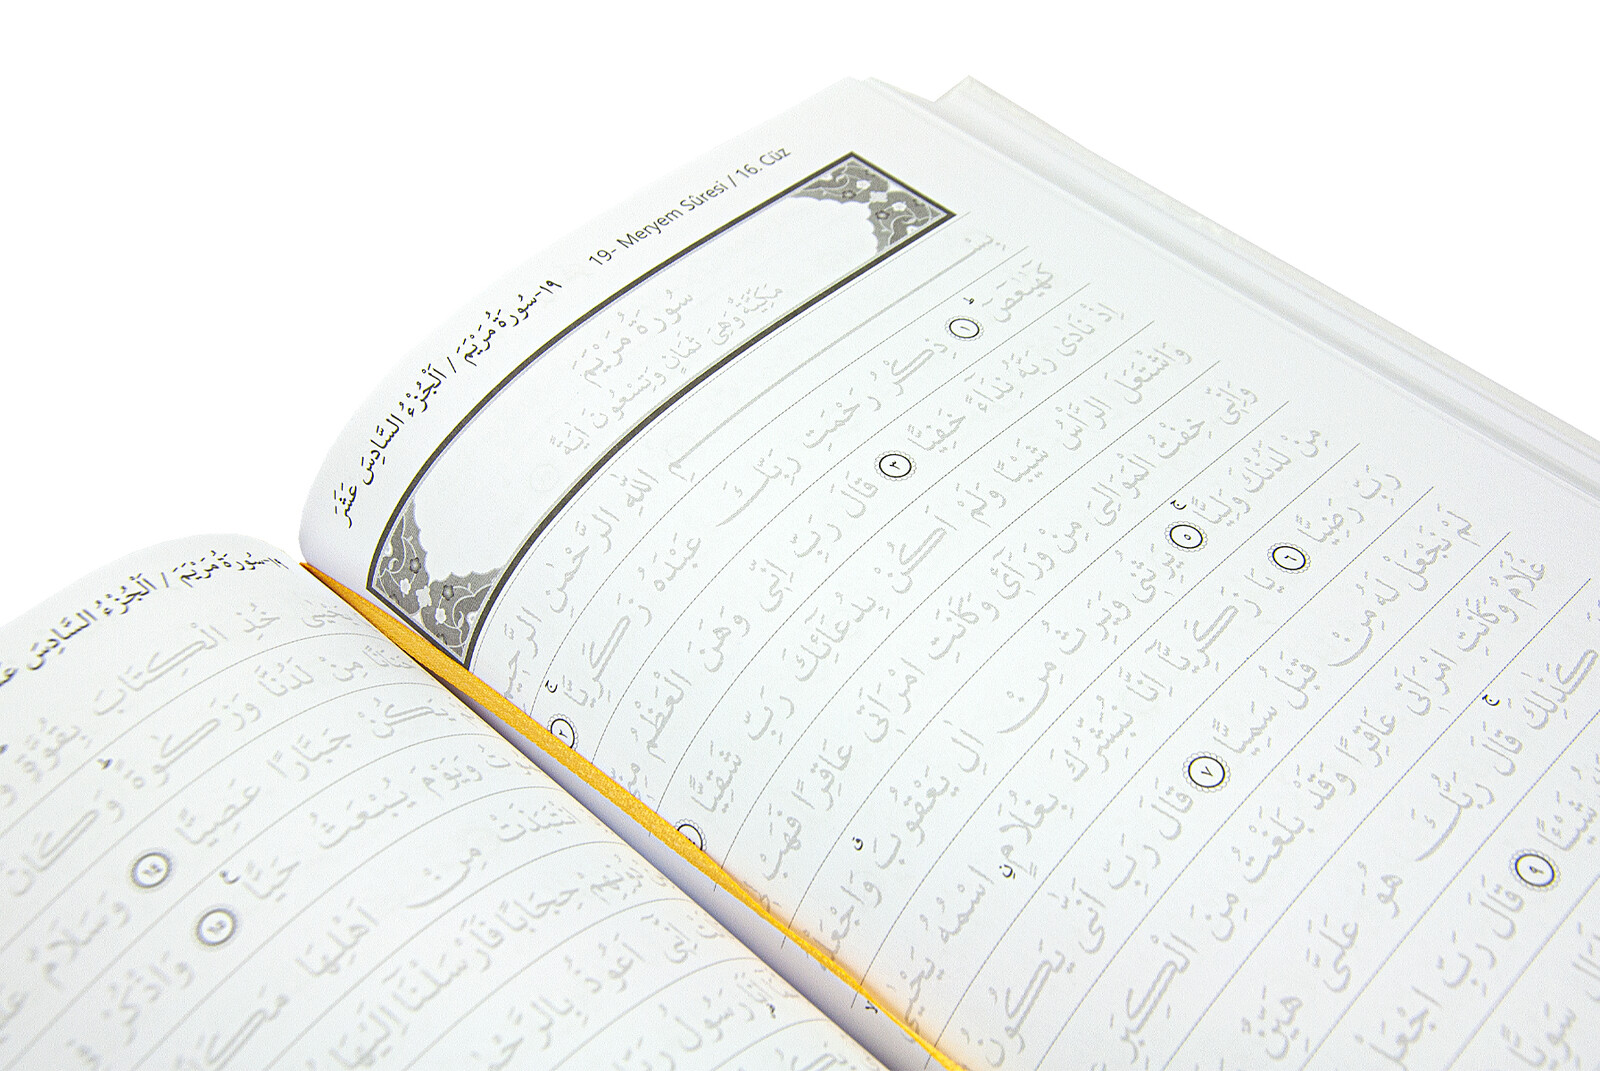 ١٩-سُورَةُ مَرْيَمَ / اَلْجُزْءُ السَّادِسَ عَشَرَ
19- Meryem Sûresi / 16. Cüz
سُورَةُ مَرْيَمَ
مَكِّيَّةٌ وَهِىَ ثَمَانٍ وَتِسْعُونَ اٰيَةً
بِسْمِ اللّٰهِ الرَّحْمٰنِ الرَّحِيمِ
كٓهٰيٰعٓصٓ ١ ذِكْرُ رَحْمَتِ رَبِّكَ عَبْدَهُ زَكَرِيَّا ٢
اِذْ نَادٰى رَبَّهُ نِدَٓاءً خَفِيًّا ٣ قَالَ رَبِّ اِنّ۪ى وَهَنَ الْعَظْمُ
وَاشْتَعَلَ الرَّأْسُ شَيْبًا وَلَمْ اَكُنْ بِدُعَٓائِكَ رَبِّ شَقِيًّا
وَاِنّ۪ى خِفْتُ الْمَوَالِىَ مِنْ وَرَٓاء۪ى وَكَانَتِ امْرَاَت۪ى عَاقِرًا فَهَبْ
مِنْ لَدُنْكَ وَلِيًّا ٥ يَرِثُن۪ى وَيَرِثُ مِنْ اٰلِ يَعْقُوبَ
رَبِّ رَضِيًّا ٦ يَا زَكَرِيَّٓا اِنَّا نُبَشِّرُكَ بِغُلَامٍ اسْمُهُ يَحْيٰى
لَمْ نَجْعَلْ لَهُ مِنْ قَبْلُ سَمِيًّا ٧ قَالَ رَبِّ اَنّٰى يَكُونُ
غُلَامٌ وَكَانَتِ امْرَاَت۪ى عَاقِرًا وَقَدْ بَلَغْتُ مِنَ الْكِبَرِ
كَذٰلِكَ قَالَ رَبُّكَ هُوَ عَلَىَّ هَيِّنٌ
شَيْـًٔا ٩ قَالَ رَبِّ اجْعَلْ
سَوِيًّا
١٩-سُورَةُ مَرْيَمَ / اَلْجُزْءُ السَّادِسَ
خُذِ الْكِتَابَ بِقُوَّةٍ
مِنْ لَدُنَّا وَزَكٰوةً وَكَانَ
جَبَّارًا عَصِيًّا ١٤ وَسَلَامٌ
وَيَوْمَ يُبْعَثُ حَيًّا ١٥ وَاذْكُرْ
انْتَبَذَتْ مِنْ اَهْلِهَا
حِجَابًا فَاَرْسَلْنَٓا اِلَيْهَا
اِنّ۪ٓى اَعُوذُ بِالرَّحْمٰنِ
رَسُولُ رَبِّكِ